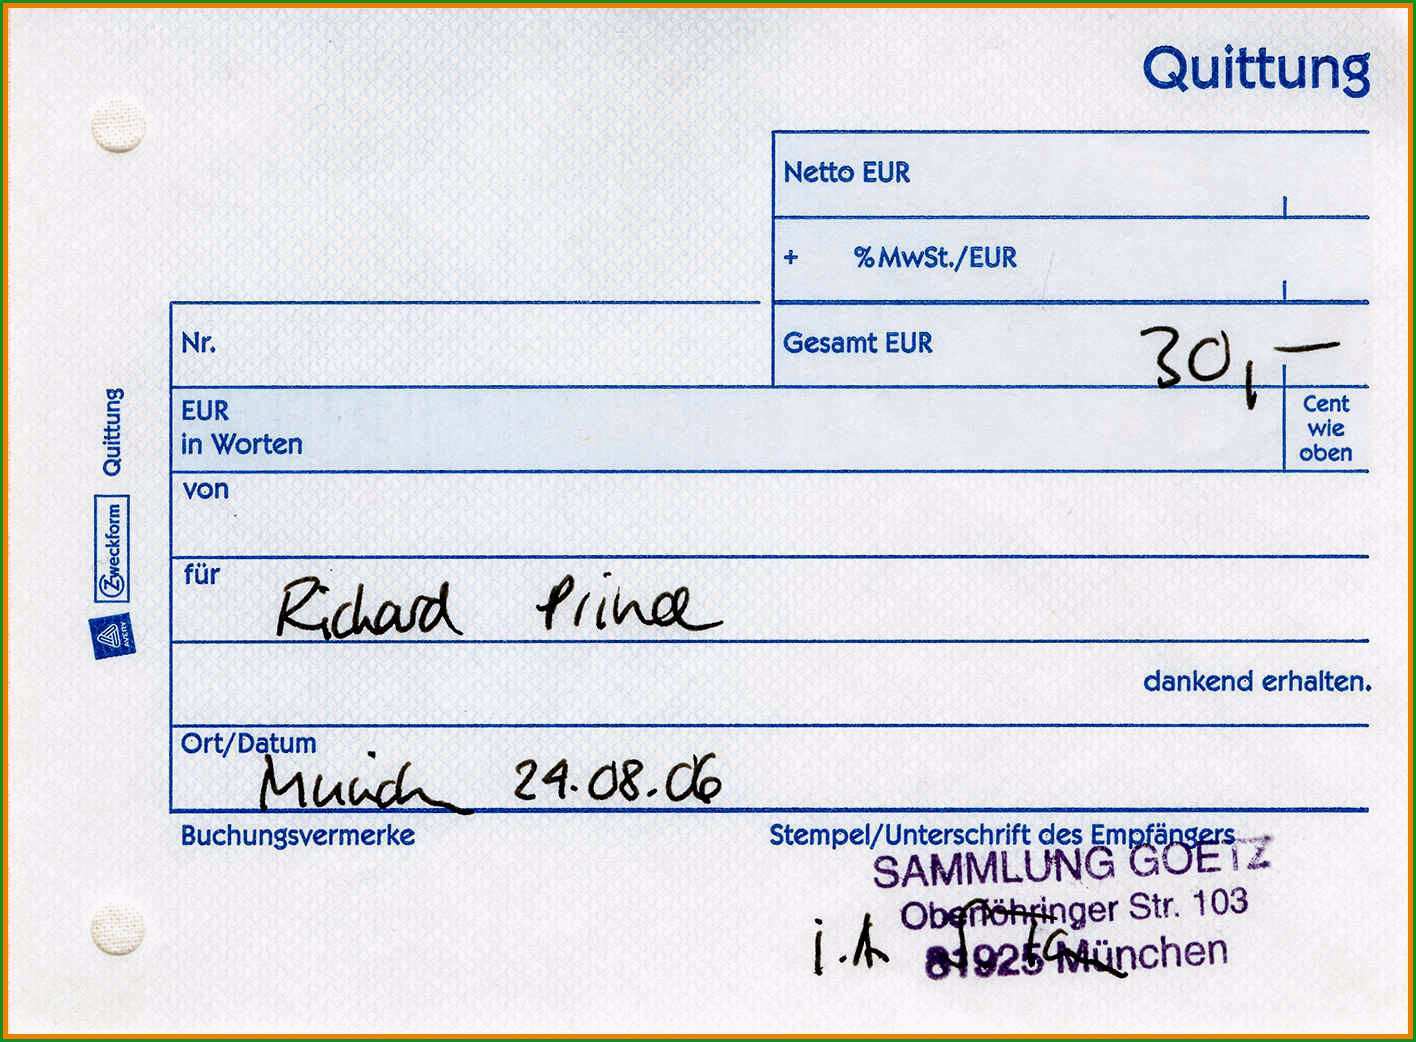 Quittung
Netto EUR
+ % MwSt./EUR
Nr.
Gesamt EUR 30,–
EUR
in Worten
Cent
wie
oben
von
für Richard Prince
dankend erhalten.
Ort/Datum
Munich 24.08.06
Buchungsvermerke
Stempel/Unterschrift des Empfängers
SAMMLUNG GOETZ
Oberföhringer Str. 103
i.A
81925 München
Quittung
Zweckform
AVERY